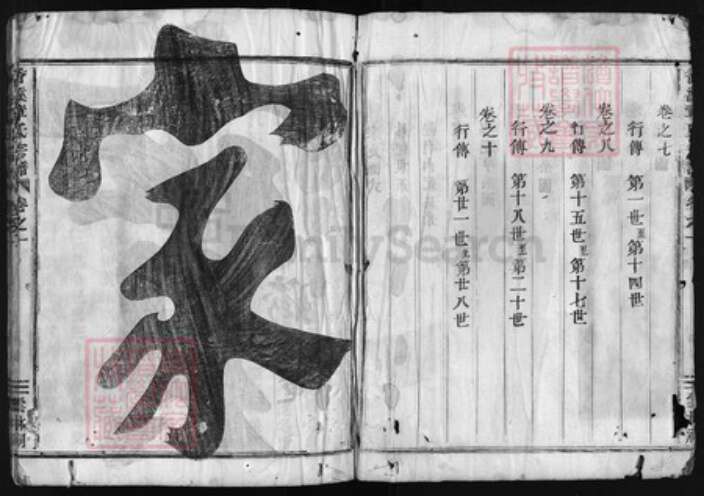 卷之七
行傳 第一世至第十四世
卷之八
行傳 第十五世至第十七世
卷之九
行傳 第十八世至第二十世
卷之十
行傳 第廿一世至第廿八世
家
FamilySearch